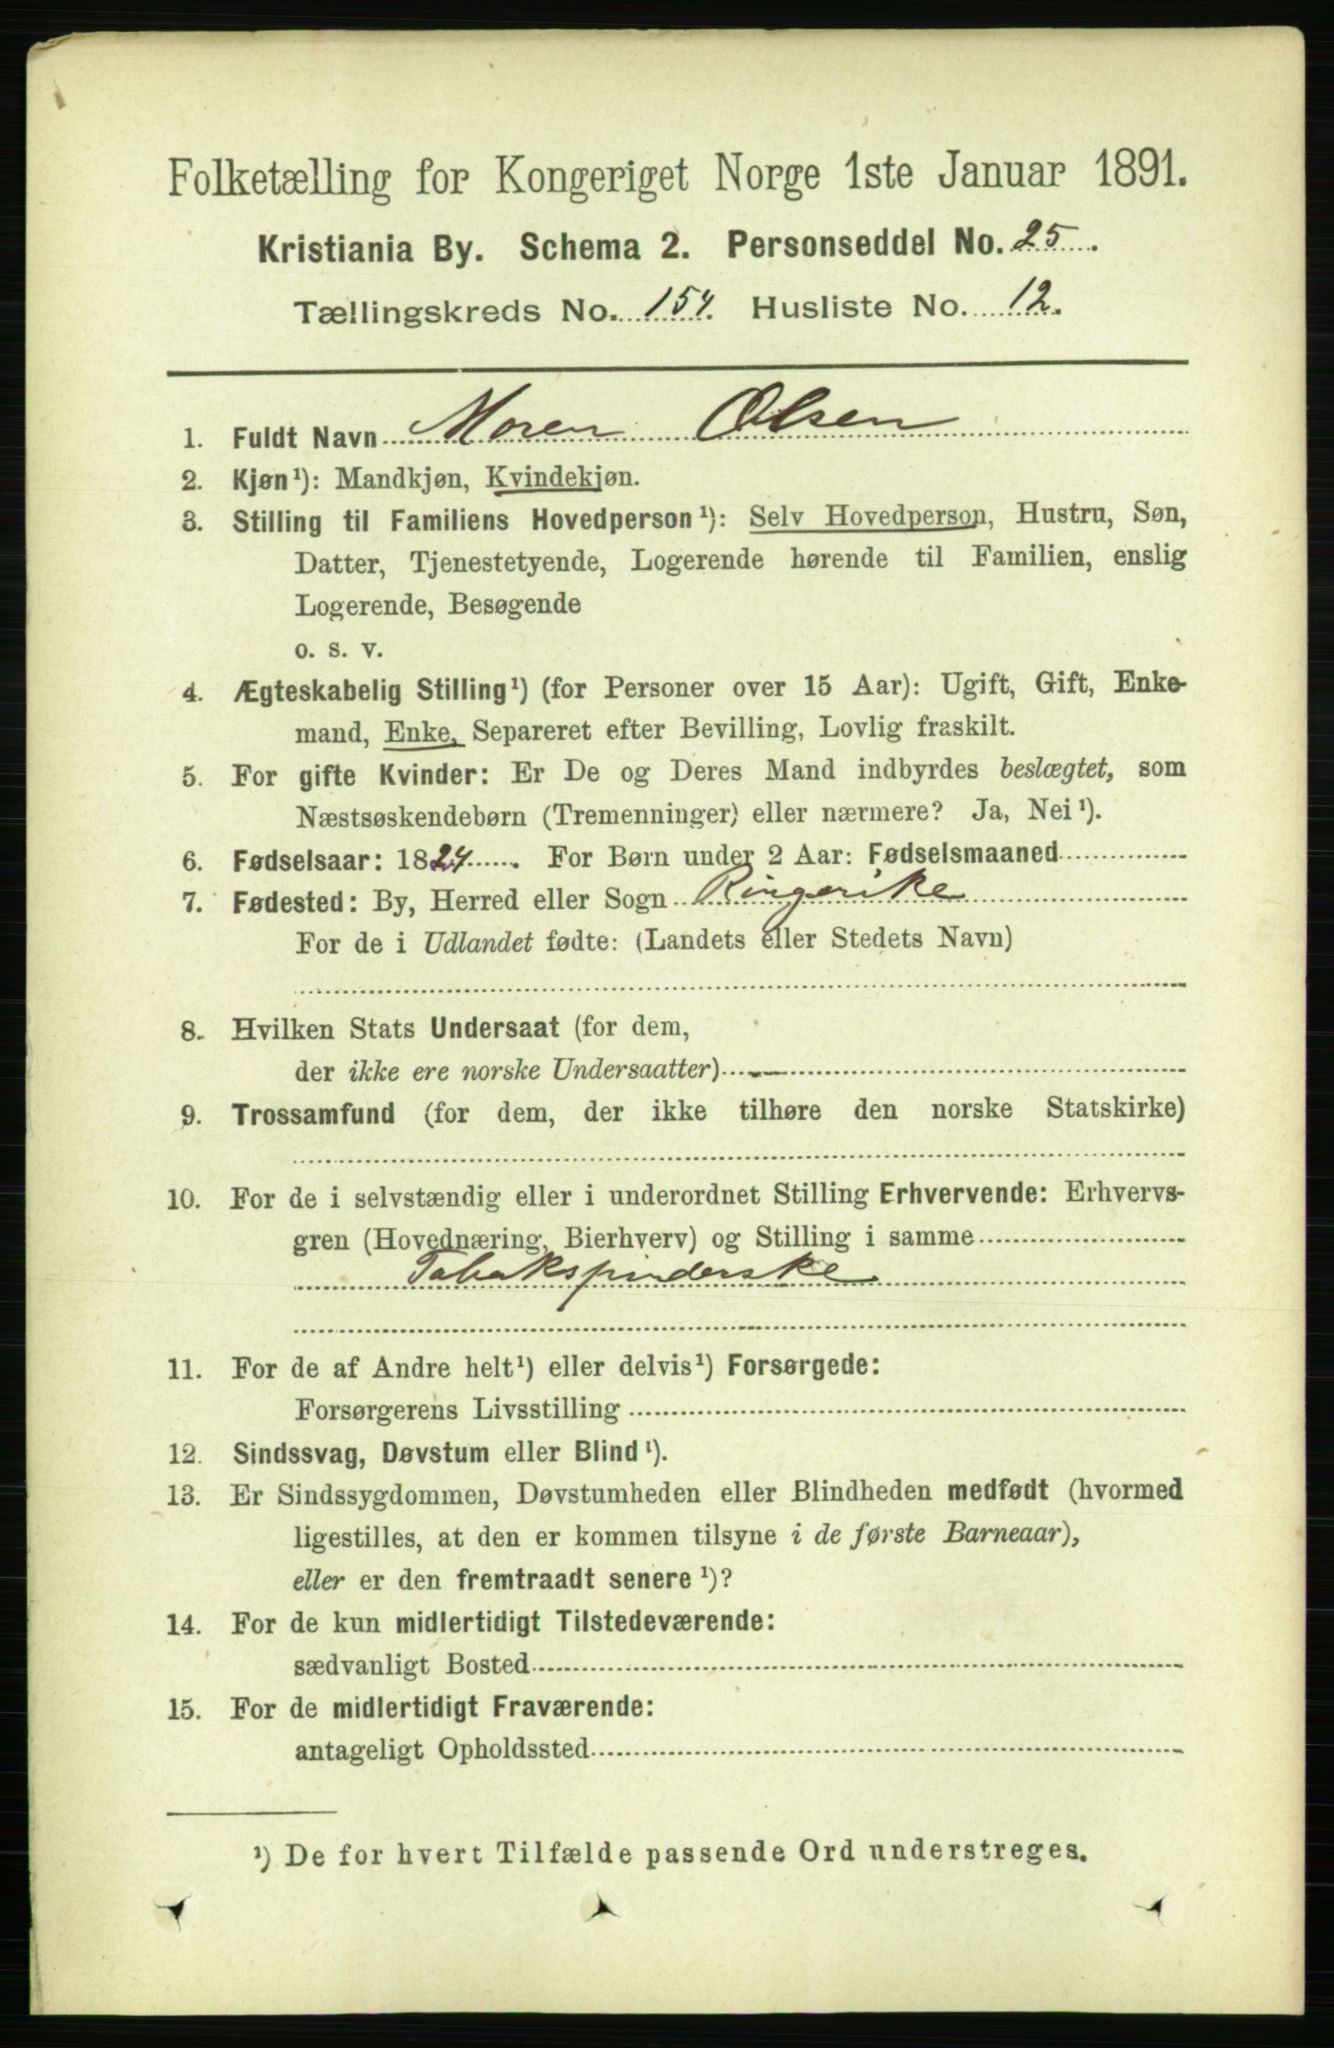 Folketælling for Kongeriget Norge 1ste Januar 1891.
Kristiania By. Schema 2. Personseddel No. 25.
Tællingskreds No. 154. Husliste No. 12.
1. Fuldt Navn Moren Olsen
2. Kjøn¹): Mandkjøn, Kvindekjøn.
3. Stilling til Familiens Hovedperson¹): Selv Hovedperson, Hustru, Søn,
Datter, Tjenestetyende, Logerende hørende til Familien, enslig
Logerende, Besøgende
o. s. v.
4. Ægteskabelig Stilling¹) (for Personer over 15 Aar): Ugift, Gift, Enke-
mand, Enke, Separeret efter Bevilling, Lovlig fraskilt.
5. For gifte Kvinder: Er De og Deres Mand indbyrdes beslægtet, som
Næstsøskendebørn (Tremenninger) eller nærmere? Ja, Nei¹).
6. Fødselsaar: 1824. For Børn under 2 Aar: Fødselsmaaned
7. Fødested: By, Herred eller Sogn Ringerike
For de i Udlandet fødte: (Landets eller Stedets Navn)
8. Hvilken Stats Undersaat (for dem,
der ikke ere norske Undersaatter)
9. Trossamfund (for dem, der ikke tilhøre den norske Statskirke)
10. For de i selvstændig eller i underordnet Stilling Erhvervende: Erhvervs-
gren (Hovednæring, Bierhverv) og Stilling i samme
Tobakspinderske
11. For de af Andre helt¹) eller delvis¹) Forsørgede:
Forsørgerens Livsstilling
12. Sindssvag, Døvstum eller Blind¹).
13. Er Sindssygdommen, Døvstumheden eller Blindheden medfødt (hvormed
ligestilles, at den er kommen tilsyne i de første Barneaar),
eller er den fremtraadt senere¹)?
14. For de kun midlertidigt Tilstedeværende:
sædvanligt Bosted
15. For de midlertidigt Fraværende:
antageligt Opholdssted
¹) De for hvert Tilfælde passende Ord understreges.